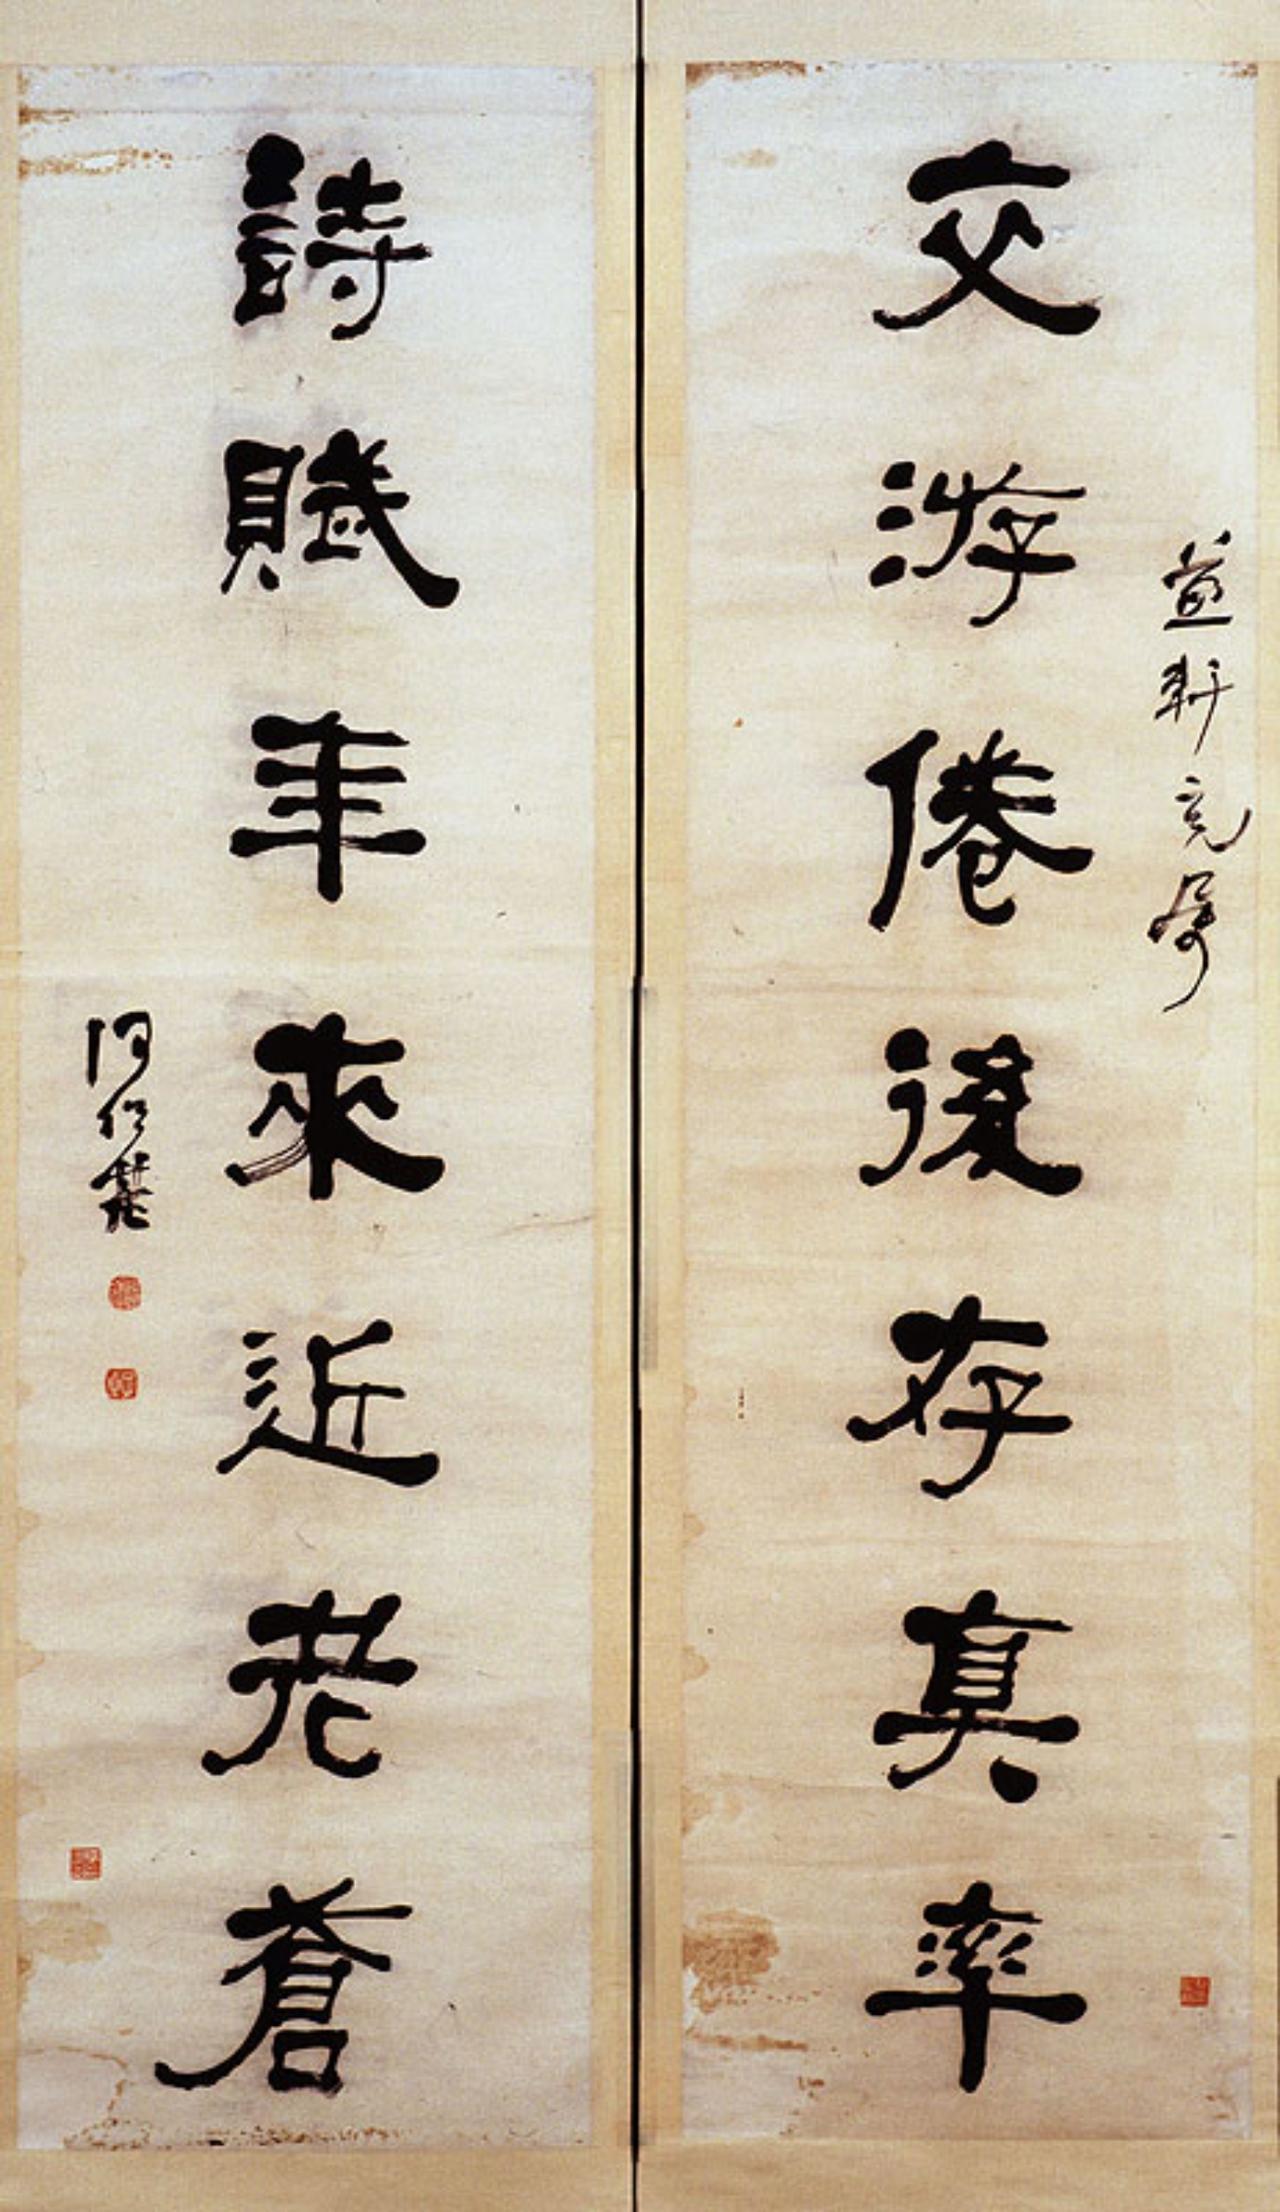 益軒兄屬
交游倦後存真率
詩賦年來近老蒼
何紹基